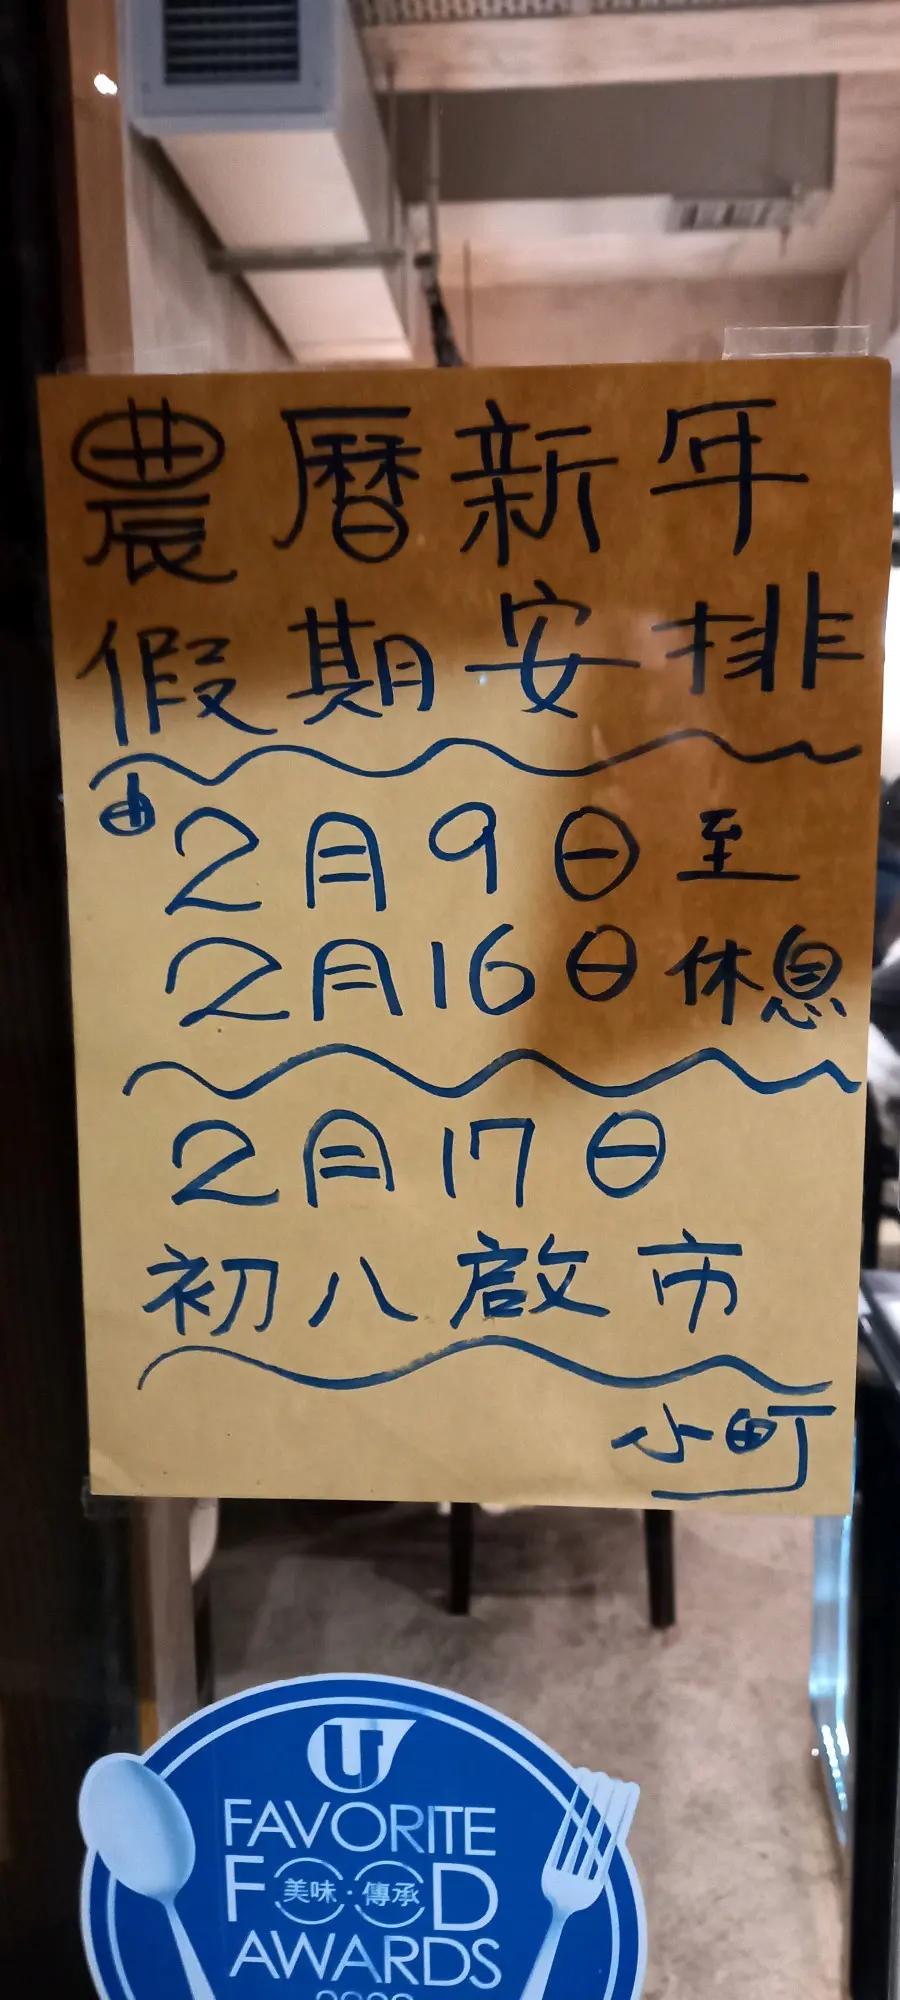 農曆新年
假期安排
由2月9日至
2月16日休息
2月17日
初八啟市
小町
U
FAVORITE
FOOD
美味·傳承
AWARDS